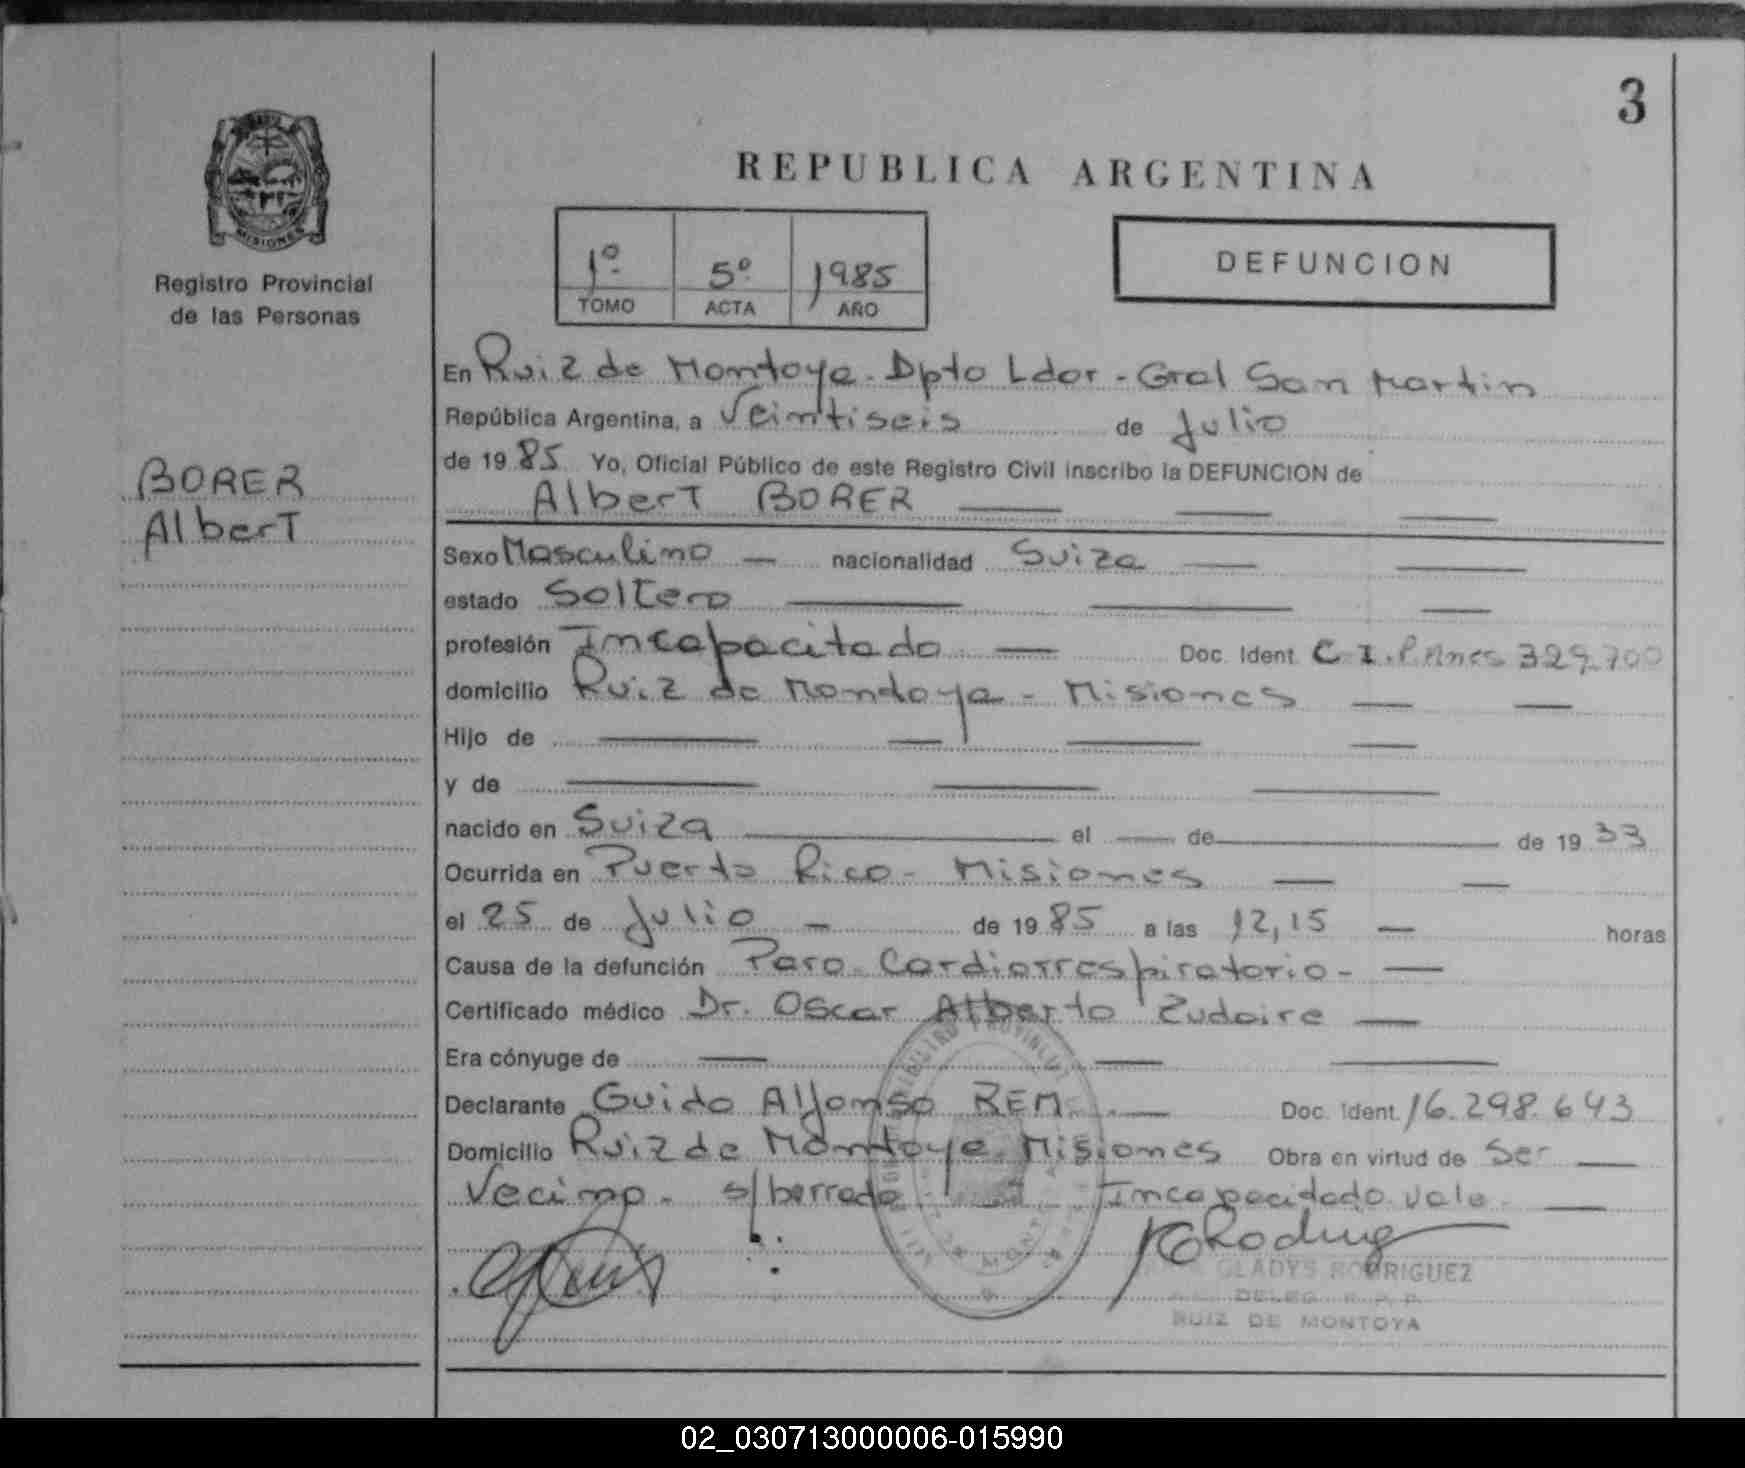 3
REPUBLICA ARGENTINA
MISIONES
Registro Provincial
de las Personas
1º 5º 1985
TOMO ACTA AÑO
DEFUNCION
BORER
Albert
En Ruiz de Montoya. Dpto Ldor - Gral San Martin
República Argentina, a Veintiseis de Julio
de 1985 Yo, Oficial Público de este Registro Civil inscribo la DEFUNCION de
Albert BORER
Sexo Masculino — nacionalidad Suiza
estado Soltero
profesión Incapacitado — Doc. Ident. C. I. 329.700
domicilio Ruiz de Montoya - Misiones
Hijo de
y de
nacido en Suiza el — de — de 1933
Ocurrida en Puerto Rico - Misiones
el 25 de Julio — de 1985 a las 12,15 — horas
Causa de la defunción Paro Cardiorrespiratorio -
Certificado médico Dr. Oscar Alberto Zudaire
Era cónyuge de
Declarante Guido Alfonso REM. — Doc. Ident. 16.298.643
Domicilio Ruiz de Montoya Misiones Obra en virtud de Ser
Vecino. s/borrado Incapacitado vale.
GLADYS RODRIGUEZ
DELEG. R. P. P.
RUIZ DE MONTOYA
02_030713000006-015990